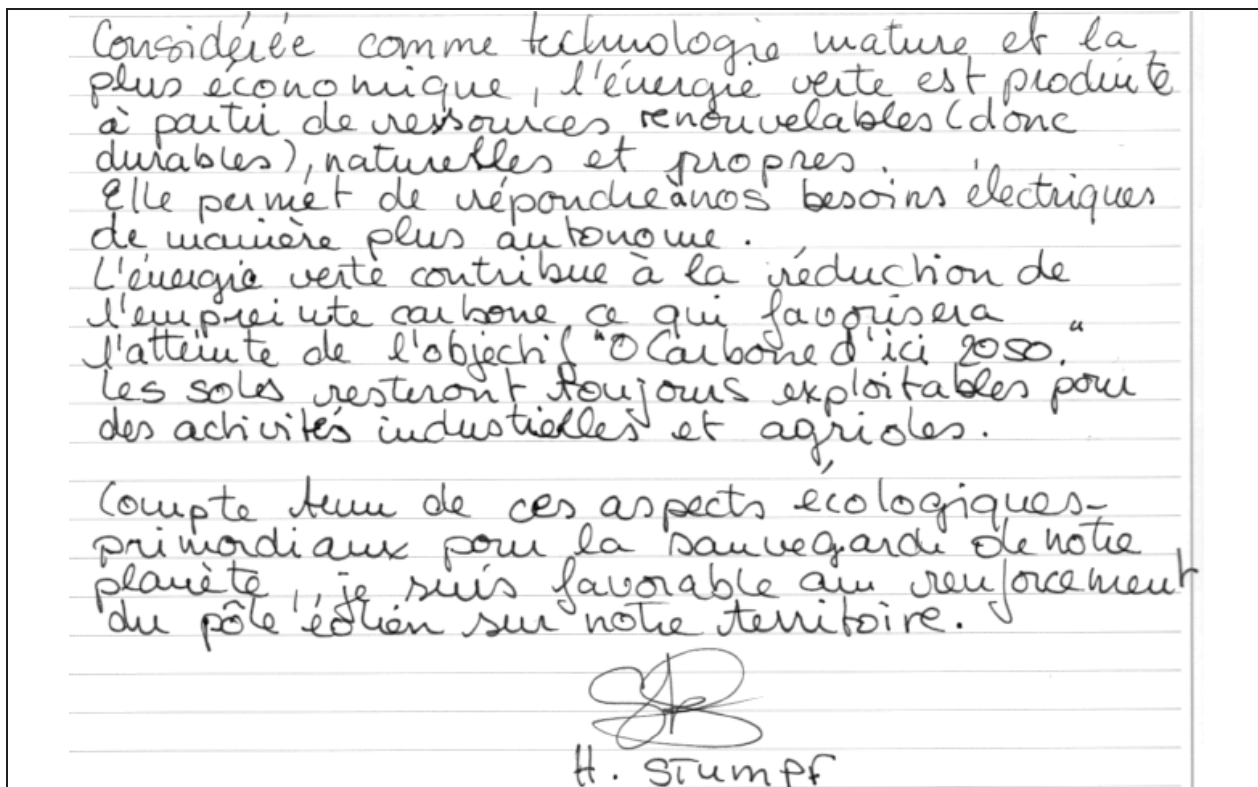 Considérée comme technologie mature et la
plus économique, l'énergie verte est produite
à partir de ressources renouvelables (donc
durables), naturelles et propres.
Elle permet de répondre à nos besoins électriques
de manière plus autonome.
L'énergie verte contribue à la réduction de
l'empreinte carbone ce qui favorisera
l'atteinte de l'objectif "0 Carbone d'ici 2050."
Les soles resteront toujours exploitables pour
des activités industielles et agrioles.
Compte tenu de ces aspects écologiques-
primordiaux pour la sauvegarde de notre
planète, je suis favorable au renforcement
du pôle éolien sur notre territoire.
H. STumpf